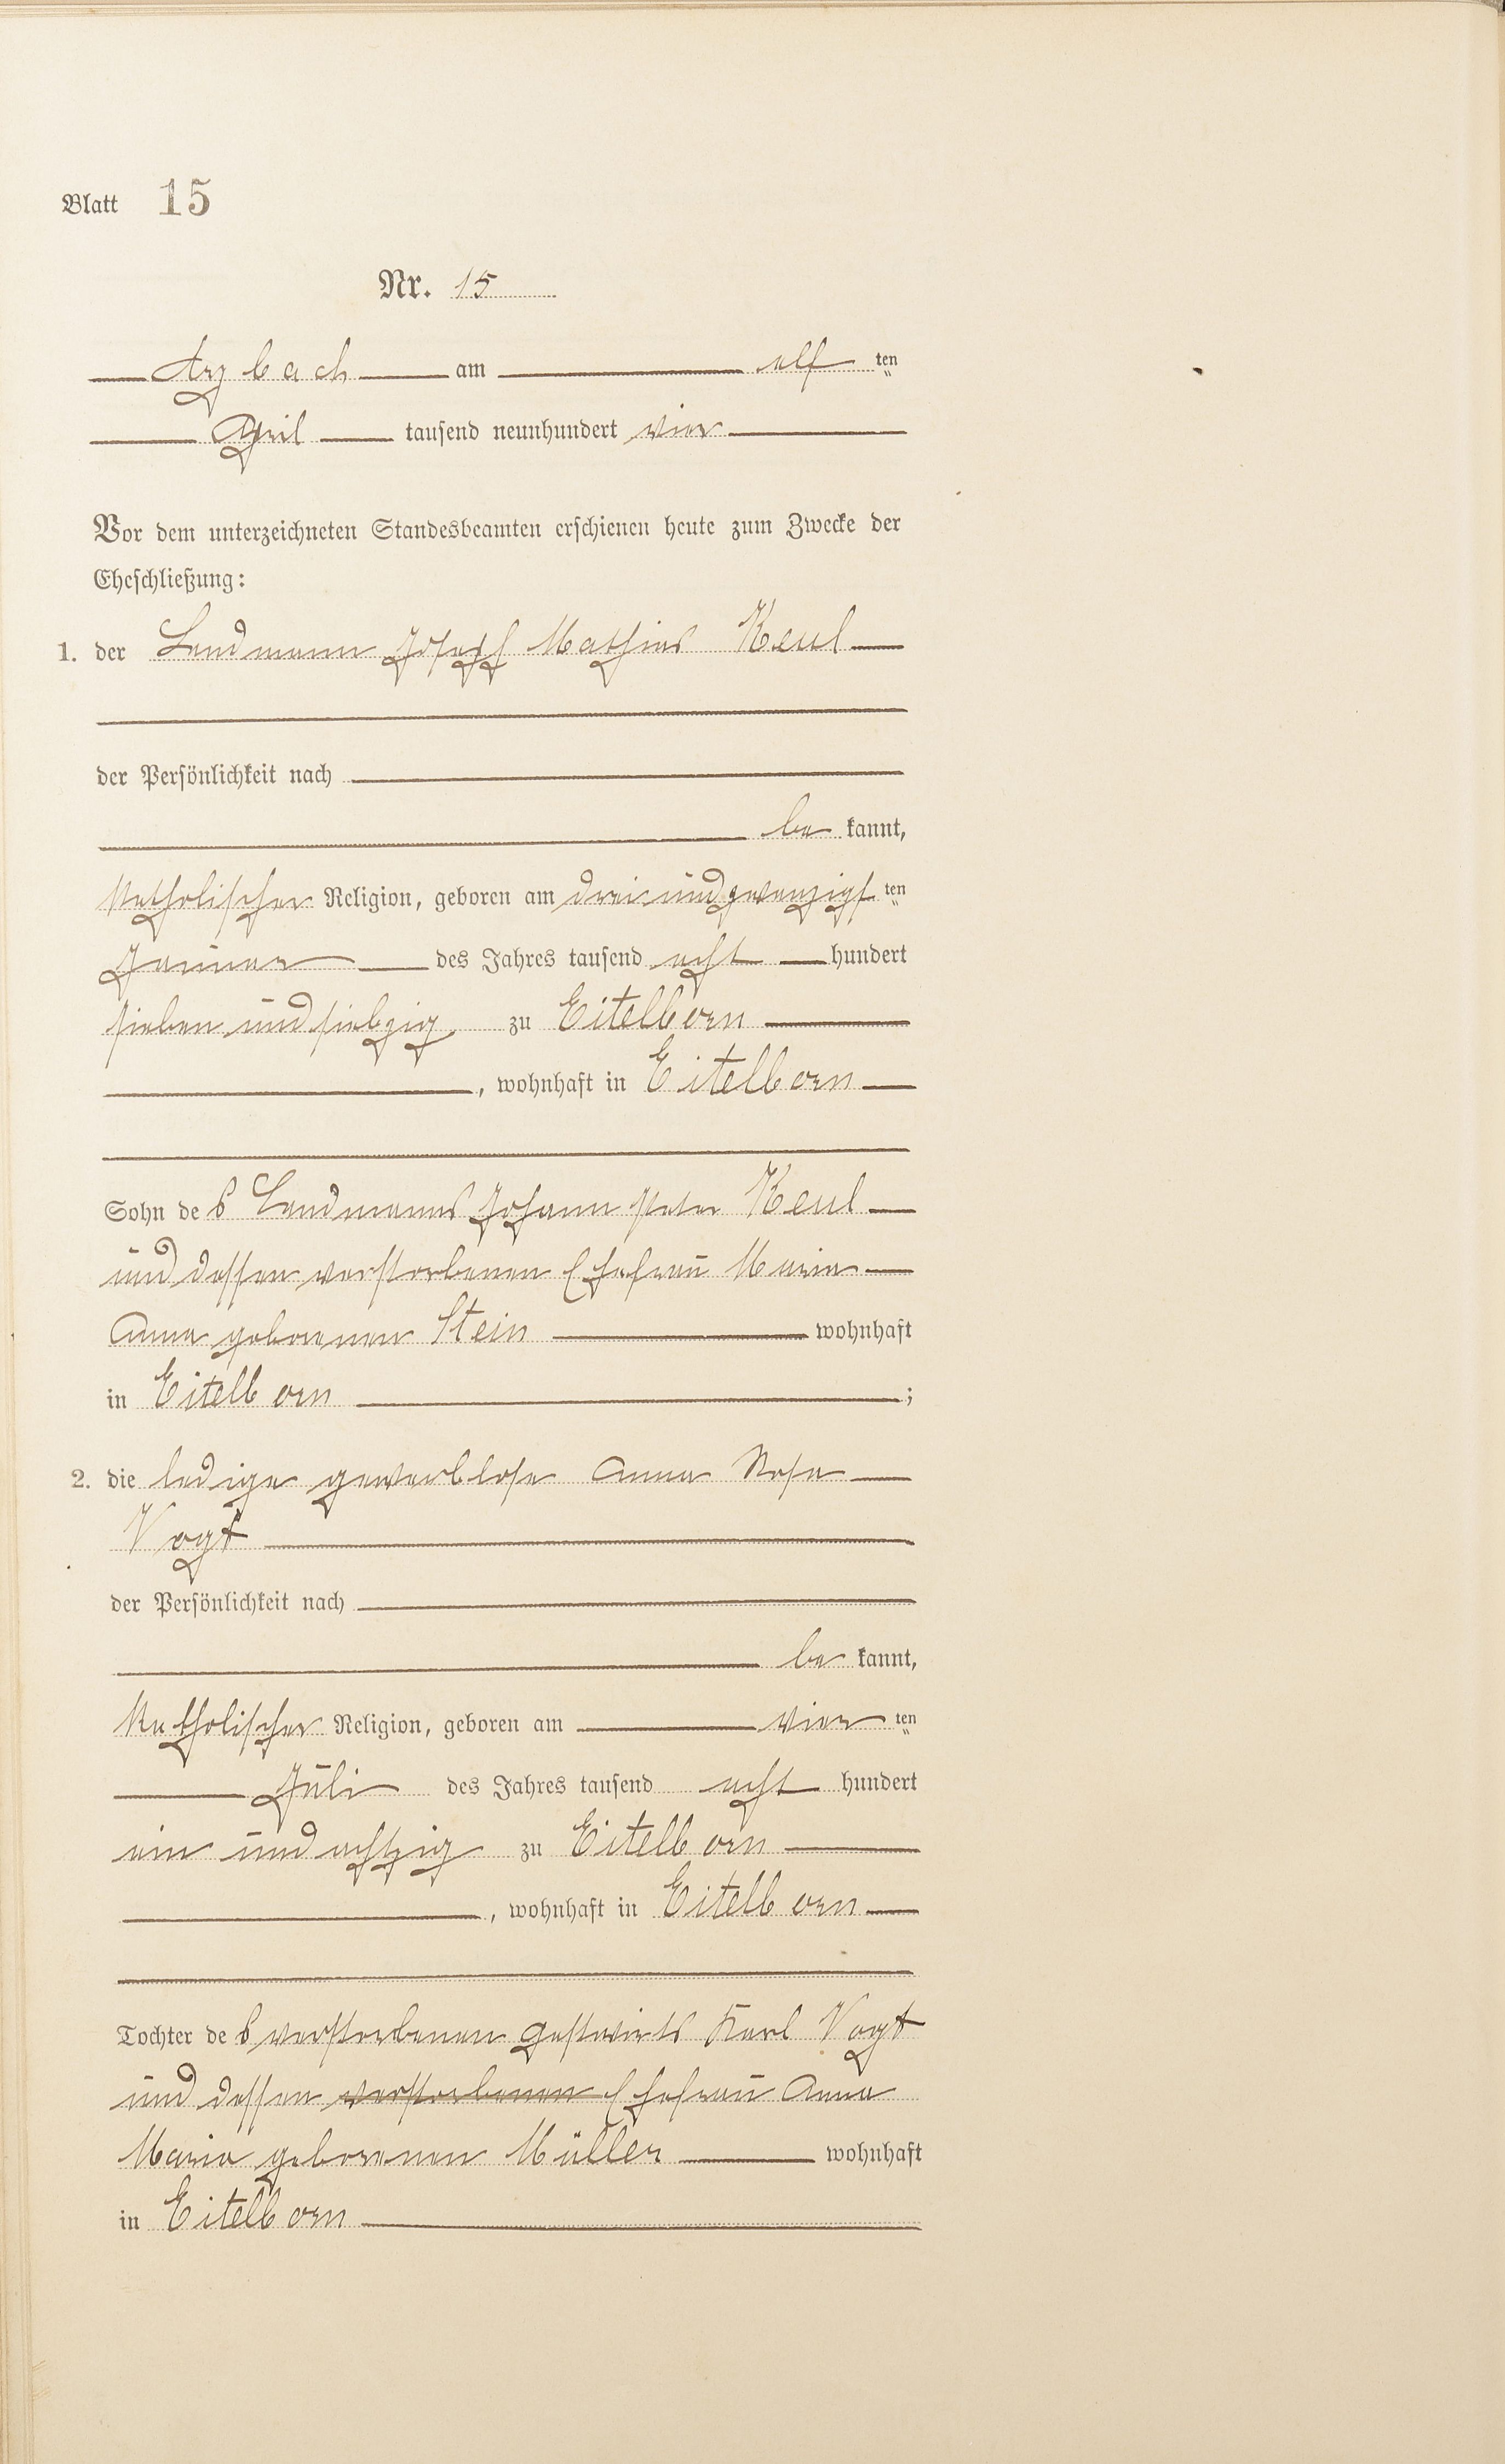 Blatt 15
Nr. 15
Arzbach am elf ten
April tausend neunhundert vier
Vor dem unterzeichneten Standesbeamten erschienen heute zum Zwecke der
Eheschließung:
1. der Landmann Joseph Mathias Keul
der Persönlichkeit nach
be kannt,
katholischer Religion, geboren am dreiundzwanzigs ten
Januar des Jahres tausend acht hundert
sieben und siebzig zu Eitelborn
, wohnhaft in Eitelborn
Sohn des Landmanns Johann Peter Keul
und dessen verstorbenen Ehefrau Maria
Anna geborenen Stein wohnhaft
in Eitelborn ;
2. die ledige gewerblose Anna Rosa
Vogt
der Persönlichkeit nach
be kannt,
katholischer Religion, geboren am vier ten
Juli des Jahres tausend acht hundert
ein und achtzig zu Eitelborn
, wohnhaft in Eitelborn
Tochter des verstorbenen Gastwirts Karl Vogt
und dessen verstorbenen Ehefrau Anna
Maria geborenen Müller wohnhaft
in Eitelborn